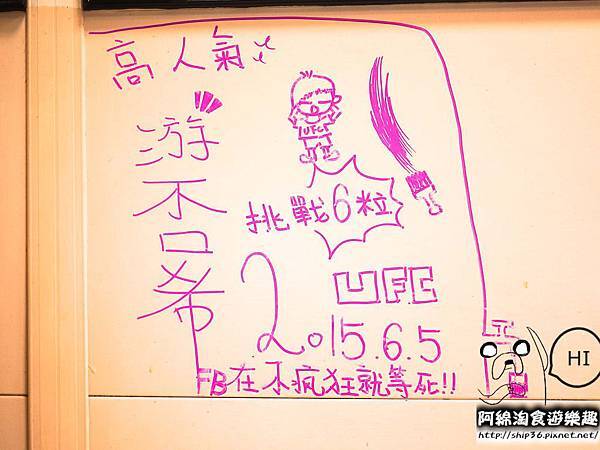 高人氣
游不口希
UFC
挑戰6粒
UFC
2015.6.5
FB在不瘋狂就等死!!
HI
阿綿淘食遊樂趣
http://ship36.pixnet.net/